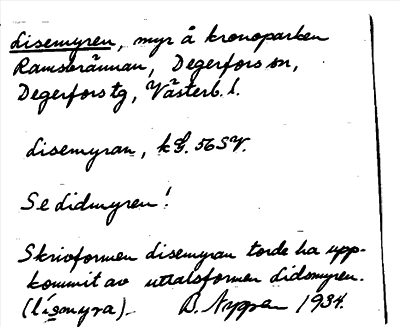 Lisemyren, myr å kronoparken
Ramsbrännan, Degerfors sn,
Degerfors tg, Västerb. l.
Lisemyran, k bl. 56 SV.
Se Lidmyren!
Skrivformen Lisemyran torde ha upp-
kommit av uttalsformen Lidsmyren.
1934.